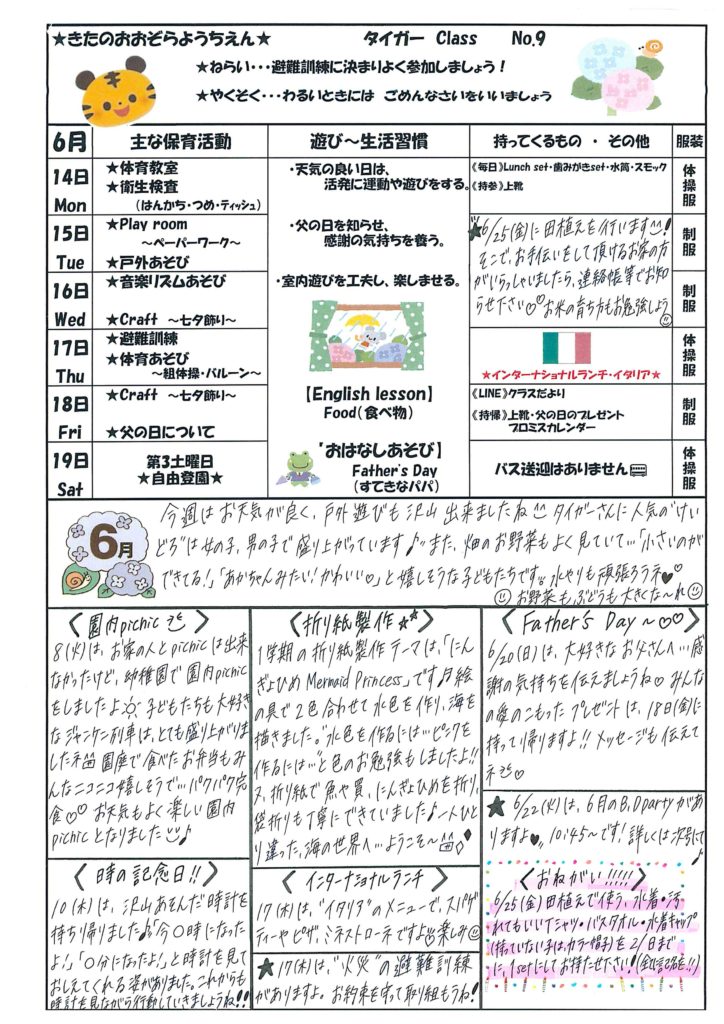 ★きたのおおぞらようちえん★ タイガー Class No.9
★ねらい･･･避難訓練に決まりよく参加しましょう！
★やくそく･･･わるいときには ごめんなさいをいいましょう
6月 主な保育活動 遊び～生活習慣 持ってくるもの ・ その他 服装
14日 Mon
★体育教室
★衛生検査
（はんかち・つめ・ティッシュ）
・天気の良い日は、
活発に運動や遊びをする。
《毎日》Lunch set・歯みがきset・水筒・スモック
《持参》上靴
体操服
15日 Tue
★Play room
～ペーパーワーク～
★戸外あそび
・父の日を知らせ、
感謝の気持ちを養う。
★6/25(金)に田植えを行います^^!
そこで、お手伝いをして頂けるお家の方
がいらっしゃいましたら、連絡帳等でお知
らせ下さい♡♡お米の育ち方もお勉強しよう
制服
16日 Wed
★音楽リズムあそび
★Craft ～七夕飾り～
・室内遊びを工夫し、楽しませる。
制服
17日 Thu
★避難訓練
★体育あそび
～組体操・バルーン～
★インターナショナルランチ・イタリア★
体操服
18日 Fri
★Craft ～七夕飾り～
★父の日について
【English lesson】
Food（食べ物）
《LINE》クラスだより
《持帰》上靴・父の日のプレゼント
プロミスカレンダー
制服
19日 Sat
第3土曜日
★自由登園★
おはなしあそび】
Father's Day
（すてきなパパ）
バス送迎はありません
体操服
6月
今週はお天気が良く、戸外遊びも沢山出来ましたね^^ タイガーさんに人気の"けい
どろ"は女の子、男の子で盛り上がっています♪"また、畑のお野菜もよく見ていて…「小さいのが
できてる!」「あかちゃんみたい!かわいい♡」と嬉しそうな子どもたちです。水やりも頑張ろうネ♥♡
お野菜も、ぶどうも大きくな〜れ
〈園内picnic〉
8(火)は、お家の人とpicnicは出来
なかったけど、幼稚園で園内picnic
をしましたよ 子どもたちも大好き
なジャンケン列車は、とても盛り上がりま
したネ 園庭で食べたお弁当もみ
んなニコニコ嬉しそうで…パクパク完
食♡♡お天気もよく楽しい園内
picnicとなりました♪
〈時の記念日!!〉
10(木)は、沢山あそんだ時計を
持ち帰りました♪「今〇時になった
よ!」「〇分になったよ!」と時計を見て
おしえてくれる姿がありました。これからも
時計を見ながら行動していきましょうね!!
〈折り紙製作★★〉
1学期の折り紙製作テーマは、「にん
ぎょひめ Mermaid Princess」です♬絵
の具で2色合わせて水色を作り、海を
描きました。"水色を作るには…ピンクを
作るには…"と色のお勉強もしましたよ!!
又、折り紙で魚や貝、にんぎょひめを折り、
袋折りも丁寧にできていました♪一人ひと
り違った、海の世界へ…ようこそ〜
〈インターナショナルランチ〉
17(木)は、"イタリア"のメニューで、スパゲ
ティーやピザ、ミネストローネですよ♡楽しみ
★17(木)は、"火災"の避難訓練
がありますよ。お約束を守って取り組もうね!
〈Father's Day〜♡♡〉
6/20(日)は、大好きなお父さんへ…感
謝の気持ちを伝えましょうね♡みんな
の愛のこもったプレゼントは、18日(金)に
持って帰りますよ!!メッセージも伝えて
ネ♡
★6/22(火)は、6月のB.D partyがあ
りますよ♥ 10:45~です!詳しくは次号にて♪
〈おねがい!!!!!〉
6/25(金)田植えで使う、水着・汚
れてもいいTシャツ・バスタオル・水着キャップ
(持っていない子は、カラー帽子)を2/日まで
に、1setにしてお持たせ下さい!(全てに記名を!!)